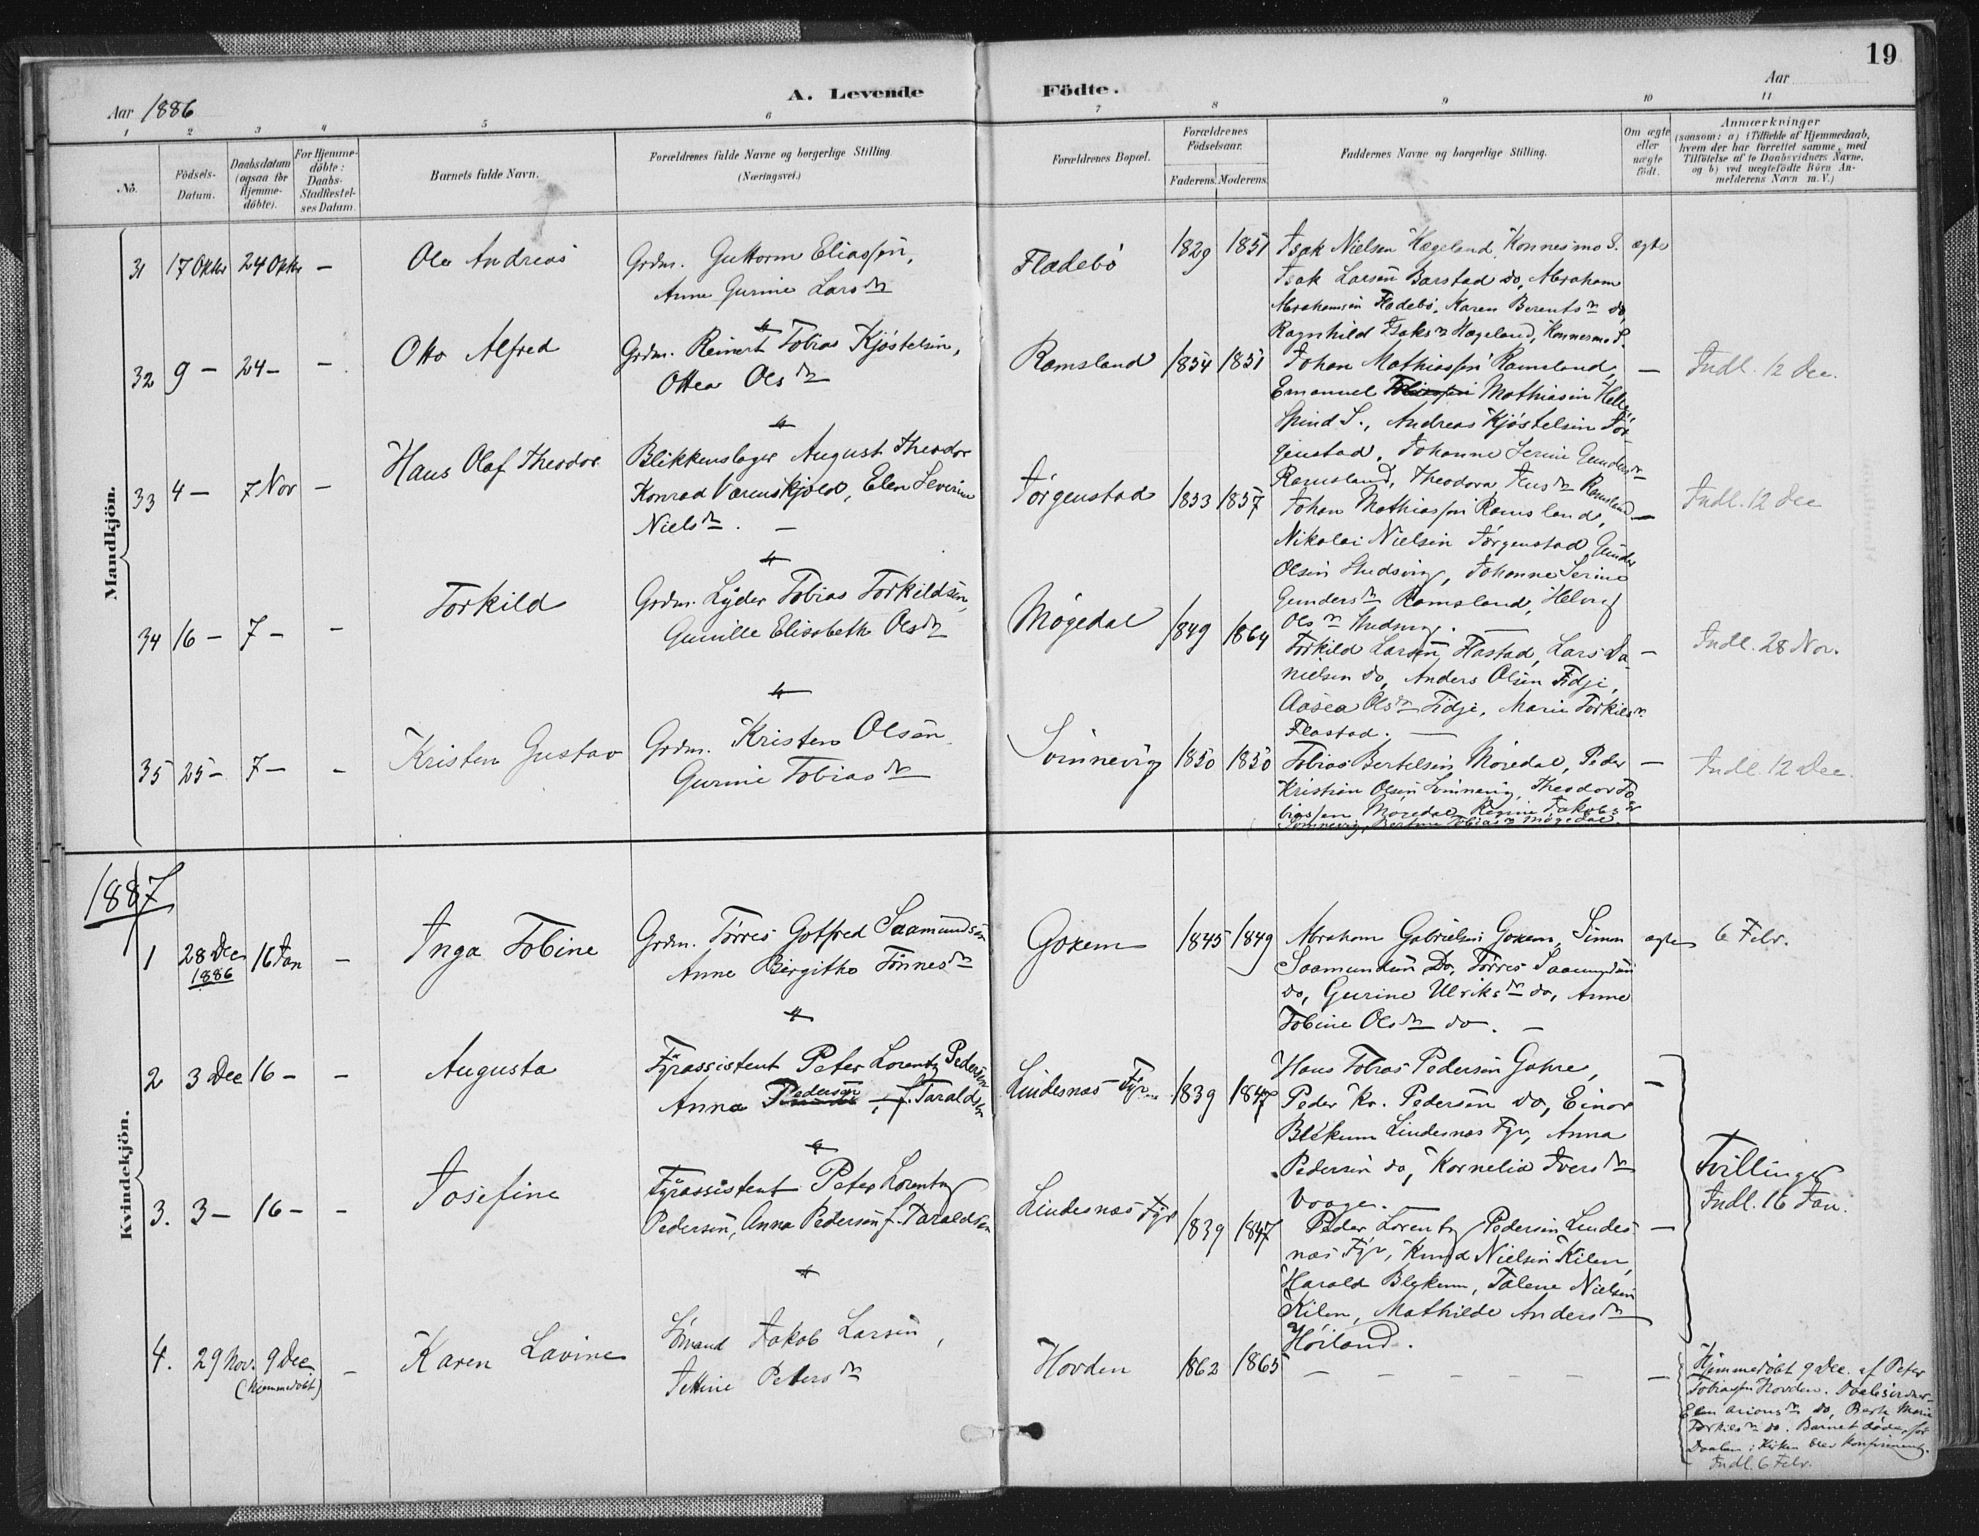 19
Aar 1886
A. Levende Födte.
Aar
1 2 3 4 5 6 7 8 9 10 11
No.
Födsels-Datum.
Daabsdatum (ogsaa for Hjemmedöbte).
For Hjemmedöbte: Daabs-Stadfestelses Datum.
Barnets fulde Navn.
Forældrenes fulde Navne og borgerlige Stilling. (Næringsvei.)
Forældrenes Bopæl.
Forældrenes Födselsaar.
Faderens. Moderens.
Faddernes Navne og borgerlige Stilling.
Om ægte eller uægte födt.
Anmærkninger
(saasom: a) i Tilfælde af Hjemmedaab,
hvem der har forrettet samme, med
Tilföielse af to Daabsvidners Navne,
og b) ved uægtefödte Börn Anmelderens Navn m. V.)
Mandkjön.
31 17 Oktbr 24 Oktbr — Ole Andreas
Grdm. Guttorm Eliassen,
Anne Gurine Larsdr
Fladebö 1829 1851
Isak Nielsen Hægeland, Konnesmo S. ægte
Isak Larsen Barstad do, Abraham
Abrahamsen Fladebö, Karen Berentsdr do,
Ragnhild Isaksdr Hægeland, Konnesmo S.
32 9 — 24 — — Otto Alfred
Grdm. Reinert Tobias Kjöstelsen,
Ottea Olsdr
Ramsland 1854 1851
Johan Mathiassen Ramsland, —
Emanuel Mathiasen Helle
Spind S., Andreas Kjöstelsen Jör-
genstad, Johanne Serine Gundersdr
Ramsland, Theodora Jensdr Ramsland
Indl. 12 Dec.
33 4 — 7 Nov — Hans Olaf Theodor
Blikkenslager August Theodor
Konrad Værenskjold, Elen Severine
Nielsdr. —
Jörgenstad 1853 1857
Johan Mathiassen Ramsland, —
Nikolai Nielsen Jörgenstad, Gunder
Olsen Hudsving, Johanne Serine
Gundersdr Ramsland, Helvig
Olsdr Hudsving. —
Indl. 12 Dec
34 16 — 7 — — Torkild
Grdm. Lÿder Tobias Torkildsen,
Gunille Elisabeth Olsdr
Mögedal 1849 1864
Torkild Larsen Flastad, Lars Da- —
nielsen do, Anders Olsen Fidje,
Aasea Olsdr Fidje, Marie Torkilsdr
Flastad. —
Indl. 28 Nov.
35 25 — 7 — — Kristen Gustav
Grdm. Kristen Olsen
Gurine Tobiasdr
Svinnevig 1850 1850
Tobias Bertelsen Möredal, Peder —
Kristian Olsen Svinnevig, Theodor To-
biassen Möredal, Regine Jakobsdr
Svinnevig, Bertine Tobiasdr Mögedal.
Indl. 12 Dec.
1887
Kvindekjön.
1 28 Dec 1886 16 Jan — Inga Tobine
Grdm. Törres Gotfred Saamundsen
Anne Birgithe Tönnesdr
Goxem 1845 1849
Abraham Gabrielsen Goxem, Simon ægte
Saamundsen Do, Törres Saamundsen
do, Gurine Ulriksdr do, Anne
Tobine Olsdr do. —
6 Febr.
2 3 Dec 16 — — Augusta
Fÿrassistent Peter Lorentz Pedersen
Anna Pedersen, f. Taraldsen
Lindesnæs Fÿr 1839 1847
Hans Tobias Pedersen Gahre, —
Peder Kr. Pedersen do, Einar
Blekum Lindesnæs Fyr, Anna
Pedersen do, Kornelia Iversdr
Vaage. —
3. 3 — 16 — — Josefine
Fÿrassistent Peter Lorentz
Pedersen, Anna Pedersen f. Taraldsen
Lindesnæs Fÿr 1839 1847
Peder Lorentz Pedersen Lindes- —
næs Fÿr, Knud Nielsen Kilen,
Harald Blekum, Talene Nielsen
Kilen, Mathilde Andersdr
Höiland.
Tvillinger
Indl. 16 Jan.
4. 29 Nov. 9 Dec (hjemmedöbt) — Karen Lavine
Sömand Jakob Larsen,
Jettine Petersdr
Hovden 1862 1865 — — — — — — —
Hjemmedöbt 9 Dec. af Peter
Tobiassen Hovden. Daabsvidner
Elen Arionsdr do, Berte Marie
Torkilsdr do. Barnet döde, för
Daaben i Kirken blev konfirmeret.
Indl. 6 Febr.